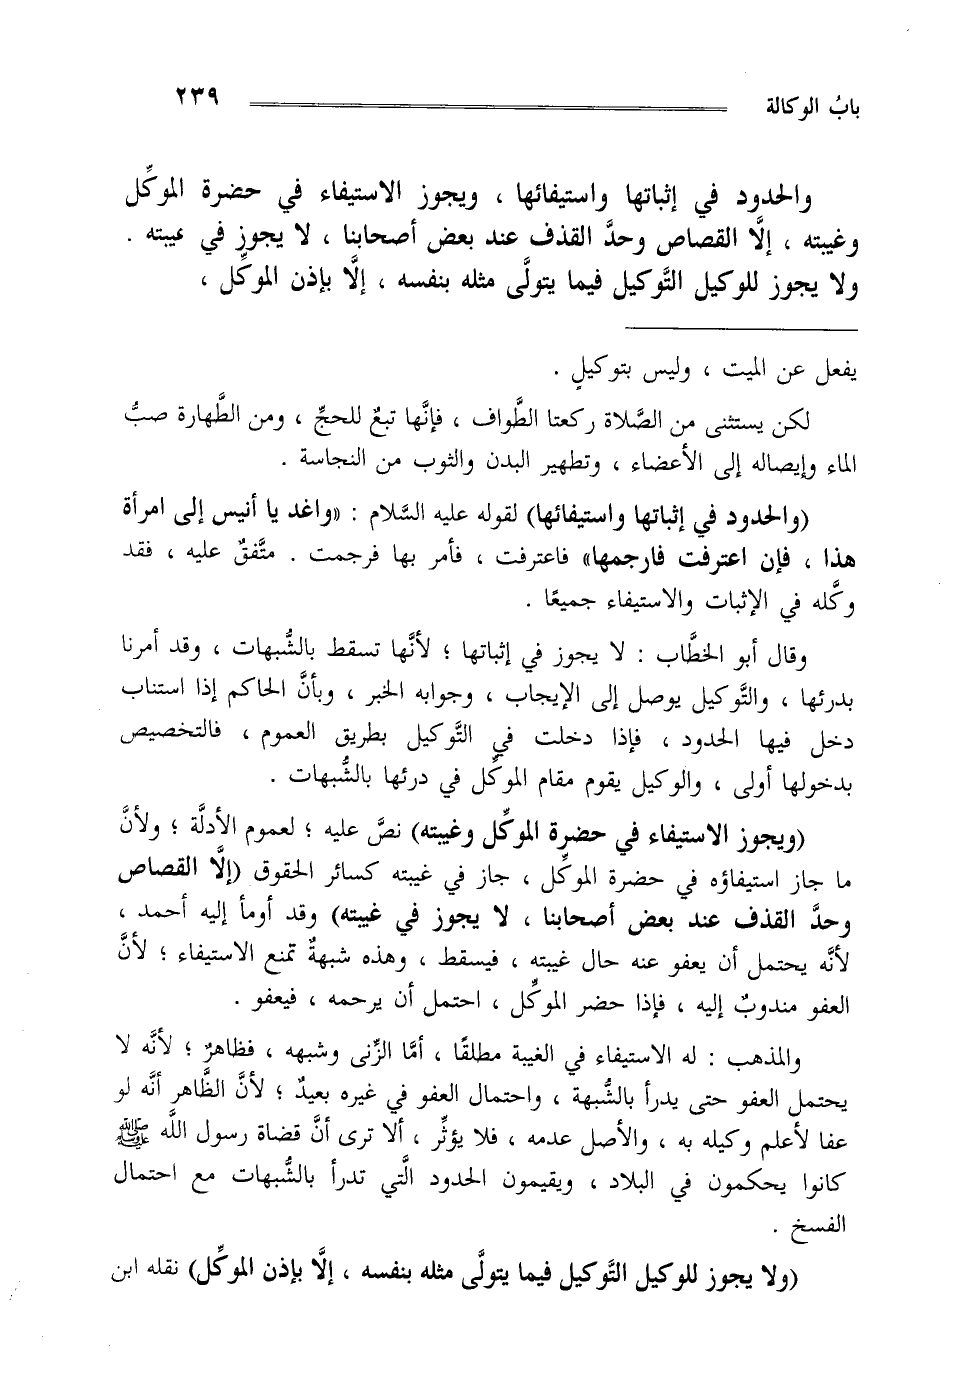 بابُ الوكالة ٢٣٩
والحدود في إثباتها واستيفائها ، ويجوز الاستيفاء في حضرة الموكِّل
وغيبته ، إلَّا القصاص وحدَّ القذف عند بعض أصحابنا ، لا يجوز في غيبته .
ولا يجوز للوكيل التَّوكيل فيما يتولَّى مثله بنفسه ، إلَّا بإذن الموكِّل ،
يفعل عن الميت ، وليس بتوكيلٍ .
لكن يستثنى من الصَّلاة ركعتا الطَّواف ، فإنَّها تبعٌ للحجِّ ، ومن الطَّهارة صبُّ
الماء وإيصاله إلى الأعضاء ، وتطهير البدن والثوب من النجاسة .
(والحدود في إثباتها واستيفائها) لقوله عليه السَّلام : «واغد يا أنيس إلى امرأة
هذا ، فإن اعترفت فارجمها» فاعترفت ، فأمر بها فرجمت . متَّفقٌ عليه ، فقد
وكَّله في الإثبات والاستيفاء جميعًا .
وقال أبو الخطَّاب : لا يجوز في إثباتها ؛ لأنَّها تسقط بالشُّبهات ، وقد أمرنا
بدرئها ، والتَّوكيل يوصل إلى الإيجاب ، وجوابه الخبر ، وبأنَّ الحاكم إذا استناب
دخل فيها الحدود ، فإذا دخلت في التَّوكيل بطريق العموم ، فالتخصيص
بدخولها أولى ، والوكيل يقوم مقام الموكِّل في درئها بالشُّبهات .
(ويجوز الاستيفاء في حضرة الموكِّل وغيبته) نصَّ عليه ؛ لعموم الأدلَّة ؛ ولأنَّ
ما جاز استيفاؤه في حضرة الموكِّل ، جاز في غيبته كسائر الحقوق (إلَّا القصاص
وحدَّ القذف عند بعض أصحابنا ، لا يجوز في غيبته) وقد أومأ إليه أحمد ،
لأنَّه يحتمل أن يعفو عنه حال غيبته ، فيسقط ، وهذه شبهةٌ تمنع الاستيفاء ؛ لأنَّ
العفو مندوبٌ إليه ، فإذا حضر الموكِّل ، احتمل أن يرحمه ، فيعفو .
والمذهب : له الاستيفاء في الغيبة مطلقًا ، أمَّا الزِّنى وشبهه ، فظاهرٌ ؛ لأنَّه لا
يحتمل العفو حتى يدرأ بالشُّبهة ، واحتمال العفو في غيره بعيدٌ ؛ لأنَّ الظَّاهر أنَّه لو
عفا لأعلم وكيله به ، والأصل عدمه ، فلا يؤثِّر ، ألا ترى أنَّ قضاة رسول اللَّه ﷺ
كانوا يحكمون في البلاد ، ويقيمون الحدود الَّتي تدرأ بالشُّبهات مع احتمال
الفسخ .
(ولا يجوز للوكيل التَّوكيل فيما يتولَّى مثله بنفسه ، إلَّا بإذن الموكِّل) نقله ابن